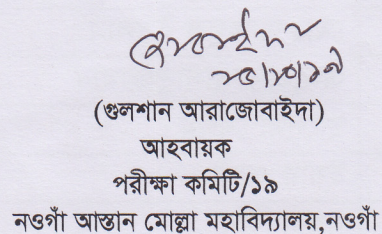 (গুলশান আরাজোবাইদা)
আহবায়ক
পরীক্ষা কমিটি/১৯
নওগাঁ আস্তান মোল্লা মহাবিদ্যালয়,নওগাঁ